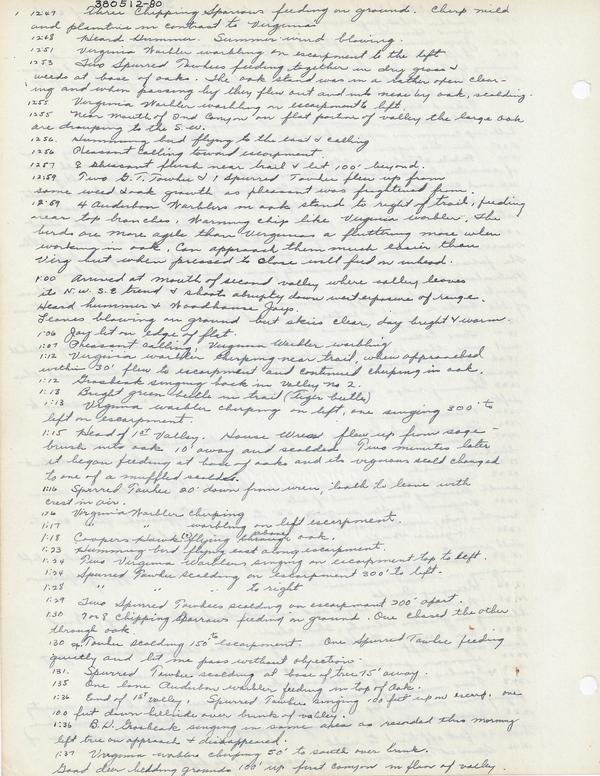 380512-80
12:47 Three Chipping Sparrows feeding on ground. Cherp mild
and plaintive in contrast to Virginias
12:48 Heard Hummer. Summer wind blowing.
12:51 Virginia Warbler warbling on escarpment to the left
12:53 Two Spurred Towhees feeding together in dry grass &
weeds at base of oaks. The oak stand was in a rather open clear-
ing and when passing by they flew out and into near by oak, scolding.
12:55 Virginia Warbler warbling on escarpment left
12:55 Near Mouth of 2nd Canyon on flat portion of valley the large oak
are drooping to the S.W.
12:56 Humming bird flying to the east & calling
12:56 Pheasant Calling toward escarpment
12:57 ♀ pheasant flush near trail & lit 100' beyond.
12:59 Two G.T. Towhee & 1 Spurred Towhee flew up from
some weed & oak growth as pheasant was frightened from.
12:59 4 Audubon Warblers in oak stand to right of trail, feeding
near top branches. Warning chip like Virginia warbler. The
birds are more agile than Virginias & fluttering more when
working in oak. Can approach them much easier than
Virg but when pressed to close will fied on ahead.
1:00 Arrived at mouth of second valley where valley leaves
its N.W. S.E trend & shoots abruptly down west exposure of range.
Heard hummer & Woodhouse Jays.
Leaves blowing on ground but skies clear, day bright & warm.
1:06 Jay lit on edge of flat.
1:07 Pheasant calling Virginia Warbler warbling
1:12 Virginia warbler cherping near trail, when approached
within 30' flew to escarpment and continued cherping in oak.
1:12 Grosbeak singing back in Valley No 2.
1:13 Bright green beetle in trail (Tiger beetle)
1:13 Virginia warbler cherping on left, one singing 300' to
left on escarpment.
1:15 Head of 1st Valley. House Wren flew up from sage-
brush into oak 10' away and scolded Two minutes later
it began feeding at base of oaks and its vigorous scold changed
to one of a muffled scold.
1:16 Spurred Towhee 20' down from wren, loath to leave with
crest in air.
1:16 Virginia Warbler cherping
1:17 " " warbling on left escarpment.
1:18 Coopers Hawk (?) flying through above oak.
1:23 Humming bird flying east along escarpment.
1:24 Two Virginia Warblers singing on escarpment top to left.
1:24 Spurred Towhee scolding on escarpment 300' to left.
1:28 " " " to right
1:29 Two Spurred Towhees scolding on escarpment 200' apart.
1:30 7 or 8 Chipping Sparrows feeding on ground. One chased the other
through oak.
1:30 Towhee scolding 150' to escarpment. One Spurred Towhee feeding
quietly and let me pass without objection.
1:31. Spurred Towhee scolding at base of tree 75' away.
1:35 One lone Audubon warbler feeding in top of oak.
1:36 End of 1st Valley, Spurred Towhee singing 100 feet up on escarp. one
100 feet down hillside over brink of valley.
1:36 B.H. Grosbeak singing in same area as recorded this morning
left tree on approach & disappeared.
1:37 Virginia warbler cherping 50' to south over brink.
Good deer bedding grounds 100' up first canyon in floor of valley.